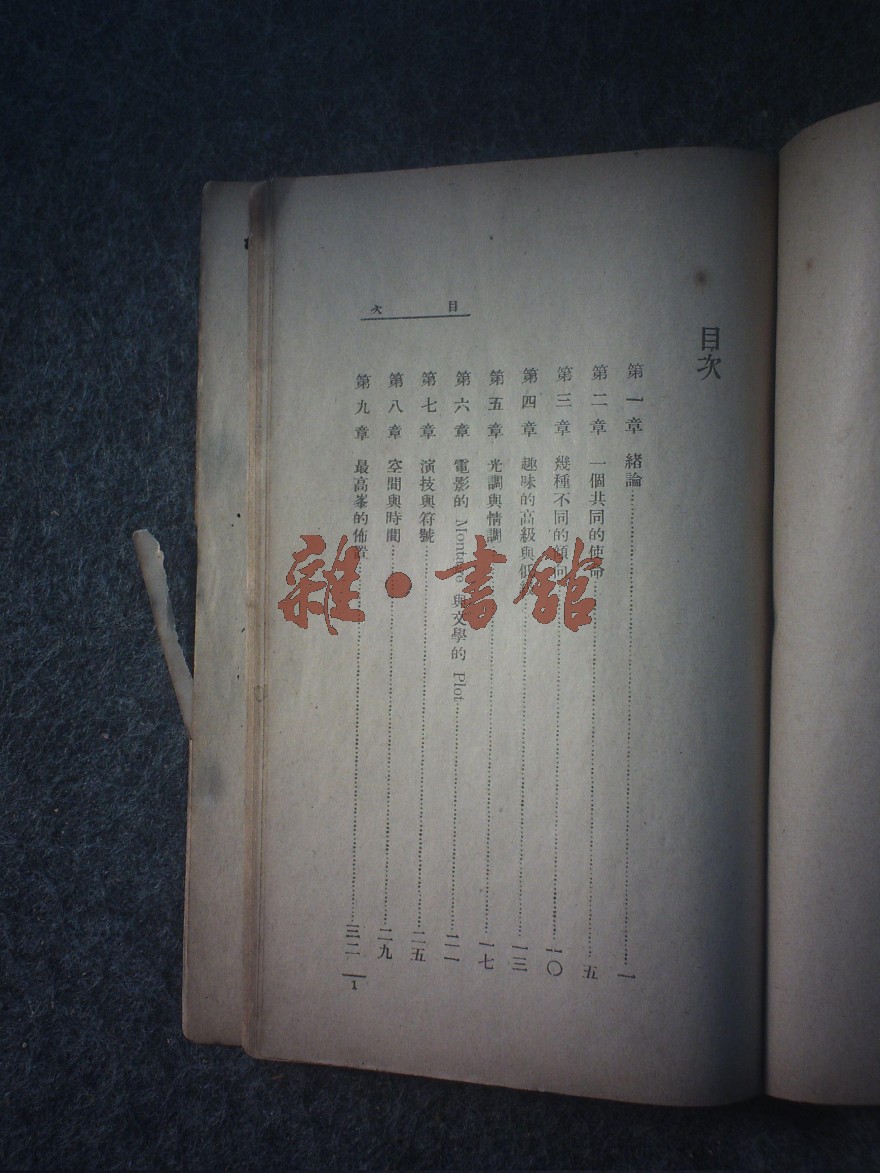 目次
第一章 緒論……一
第二章 一個共同的使命……五
第三章 幾種不同的傾向……一〇
第四章 趣味的高級與低……一三
第五章 光調與情調……一七
第六章 電影的 Montage 與文學的 Plot……二一
第七章 演技與符號……二五
第八章 空間與時間……二九
第九章 最高峯的佈置……三二
目次
1
雜·書館